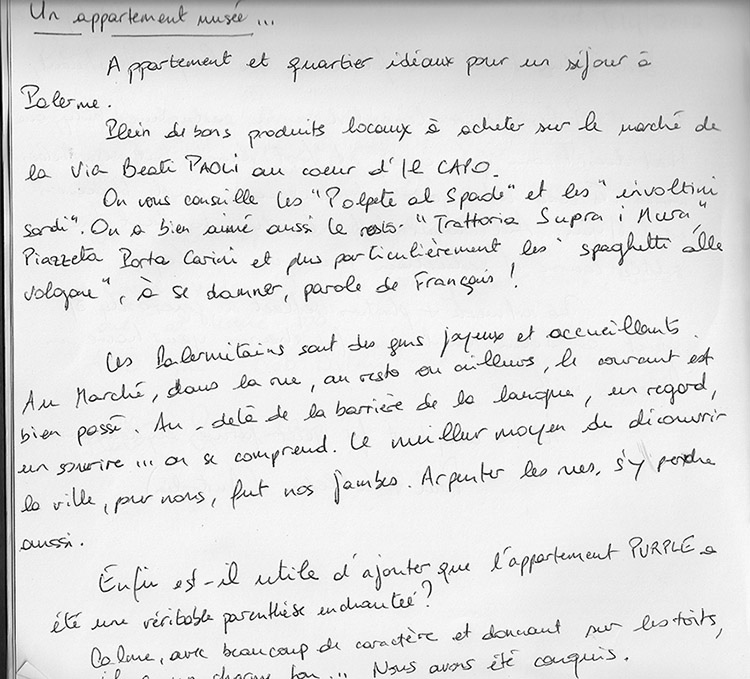 Un appartement musée...
Appartement et quartier idéaux pour un séjour à
Palerme.
Plein de bons produits locaux à acheter sur le marché de
la Via Beati PAOLI au coeur d'Il CAPO.
On vous conseille les "Polpete al Spade" et les "involtini
sardi". On a bien aimé aussi le resto "Trattoria Supra i Mura",
Piazzeta Porta Carini et plus particulièrement les "spaghetti alle
volgone", à se damner, parole de Français !
Les Palermitains sont des gens joyeux et accueillants.
Au Marché, dans la rue, au resto ou ailleurs, le courant est
bien passé. Au-delà de la barrière de la langue, un regard,
un sourire... on se comprend. Le meilleur moyen de découvrir
la ville, pour nous, fut nos jambes. Arpenter les rues, s'y perdre
aussi.
Enfin est-il utile d'ajouter que l'appartement PURPLE a
été une véritable parenthèse enchantée ?
Calme, avec beaucoup de caractère et donnant sur les toits,
il a un charme fou... Nous avons été conquis.